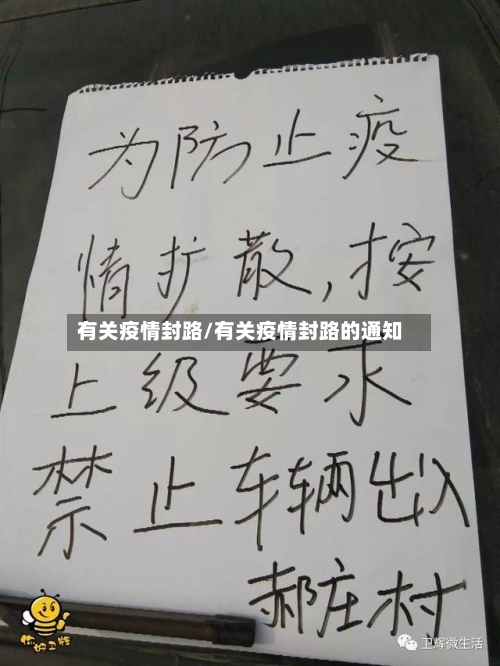 为防止疫
情扩散,按
有关疫情封路/有关疫情封路的通知
上级要求
禁止车辆出入
郝庄村
你好卫辉
卫辉微生活